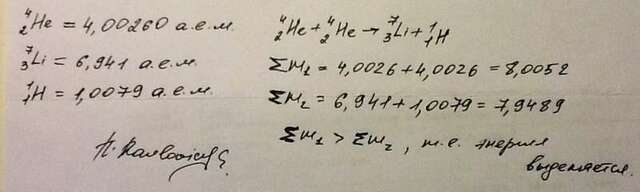 ⁴₂He = 4,00260 а.е.м.
⁷₃Li = 6,941 а.е.м.
¹₁H = 1,0079 а.е.м.
⁴₂He + ⁴₂He → ⁷₃Li + ¹₁H
Σm₁ = 4,0026 + 4,0026 = 8,0052
Σm₂ = 6,941 + 1,0079 = 7,9489
Σm₁ > Σm₂, т.е. энергия
выделяется.